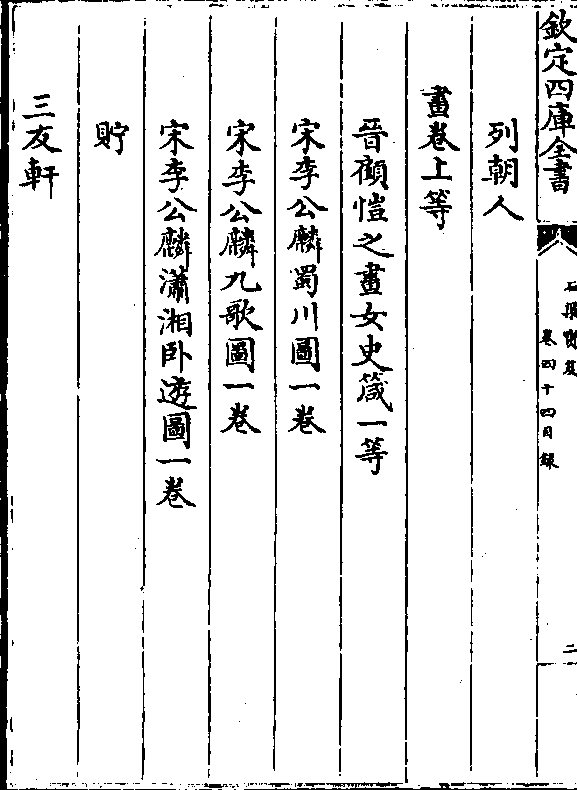 欽定四庫全書
卷四十四目録
二
列朝人
畫卷上等
晉顧愷之畫女史箴一等
宋李公麟蜀川圖一卷
宋李公麟九歌圖一卷
宋李公麟瀟湘卧遊圖一卷
貯
三友軒